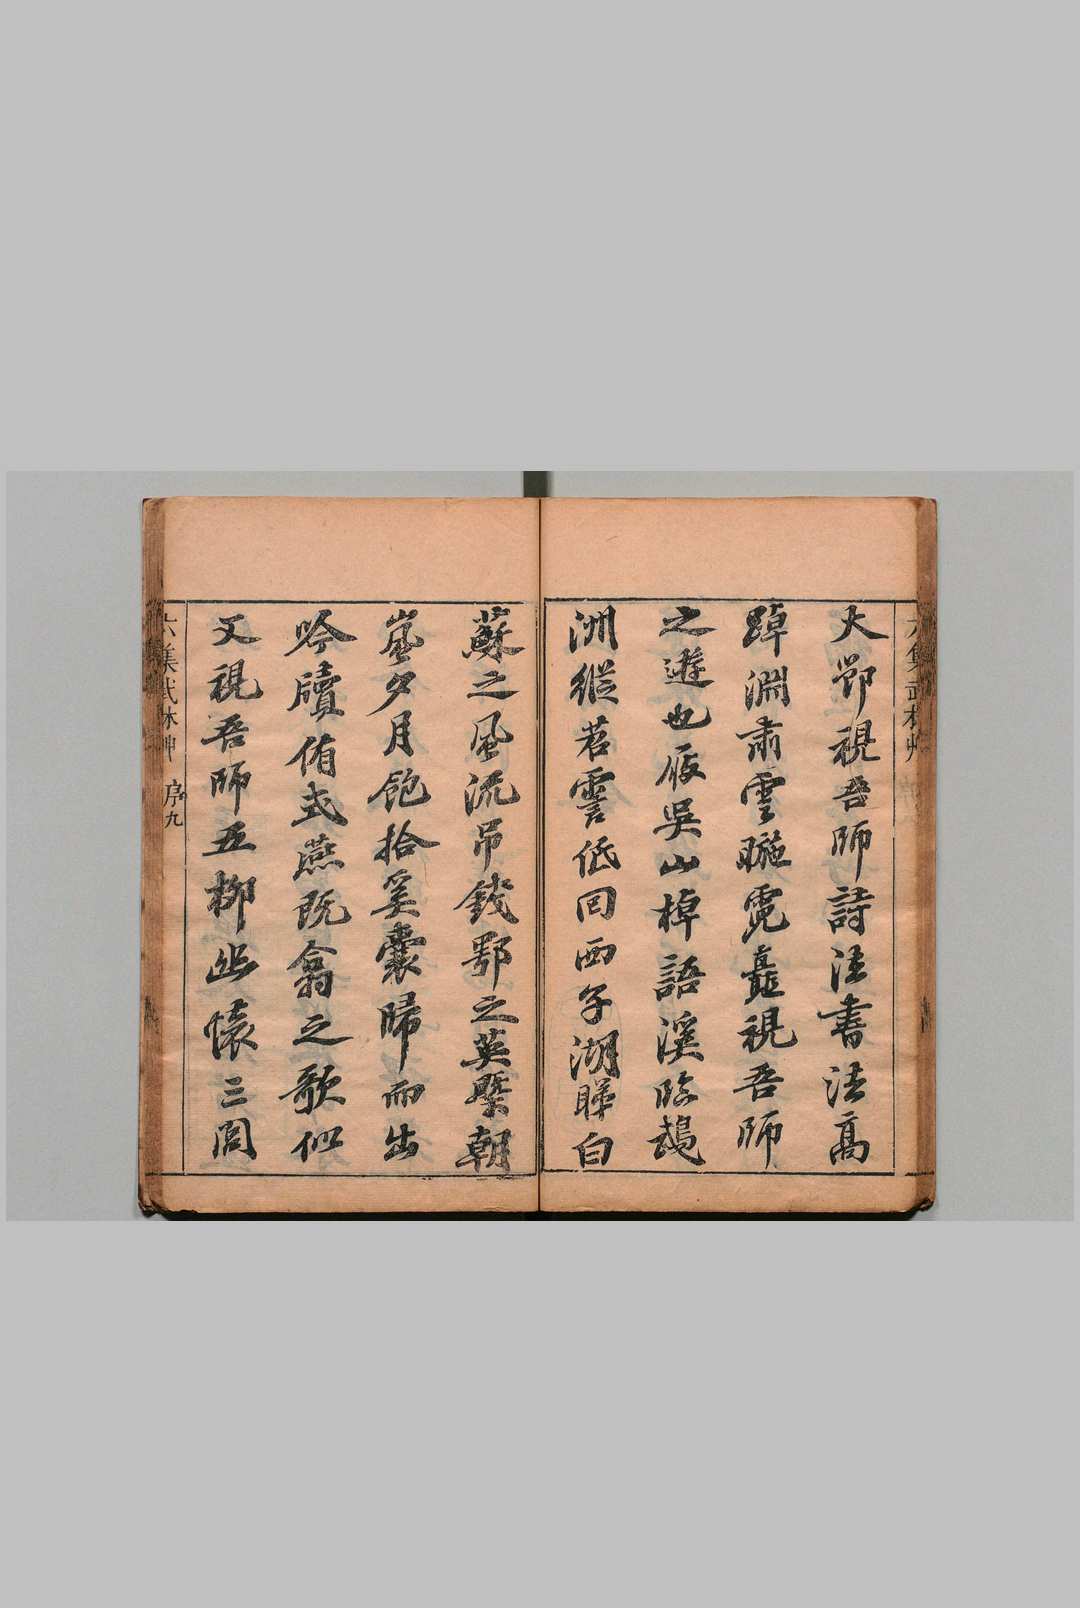 大鄣視吾師詩法書法高
踔淵肅雲曬霓矗視吾師
之遊也屐吳山棹語溪臨鴆
洲縱苕霅低回西子湖睇白
蘇之風流吊錢鄂之英槩朝
嵐夕月飽拾奚囊歸而出
吟牘侑式燕既翕之歌似
又視吾師五柳幽懷三閭
六集武林艸 序九